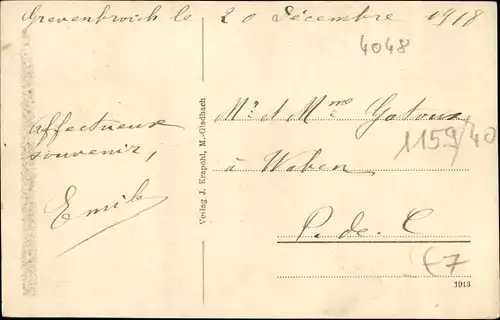 Grevenbroich le 20 Décembre 1918
4048
Affectueux
souvenir,
Emile
Verlag J. Krapohl, M.-Gladbach
Mr et Mme Gatoux
1159/40
à Waben
P. de. C
€7
1913